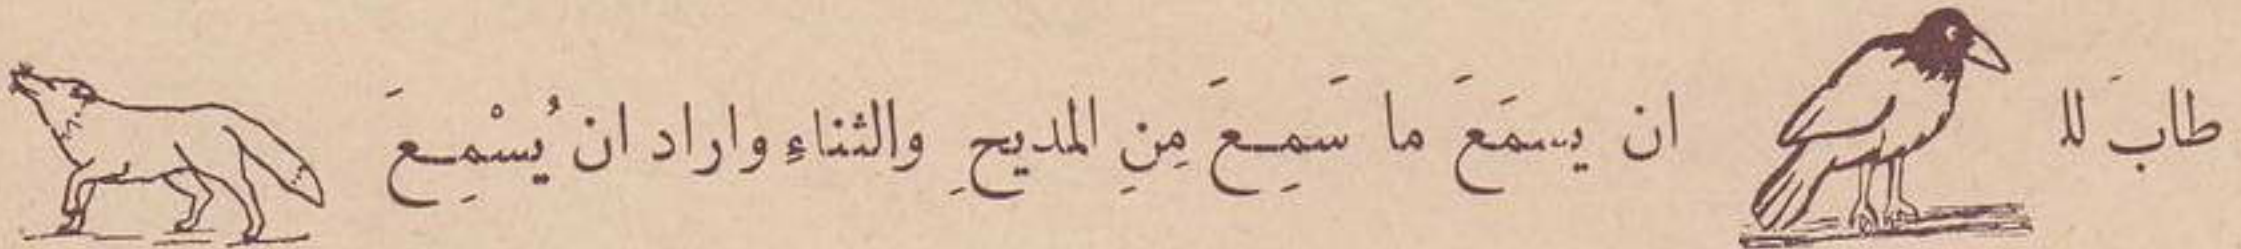 طابَ للـ ان يسمَعَ ما سَمِعَ مِنِ المديحِ والثناءِ واراد ان يُسْمِعَ